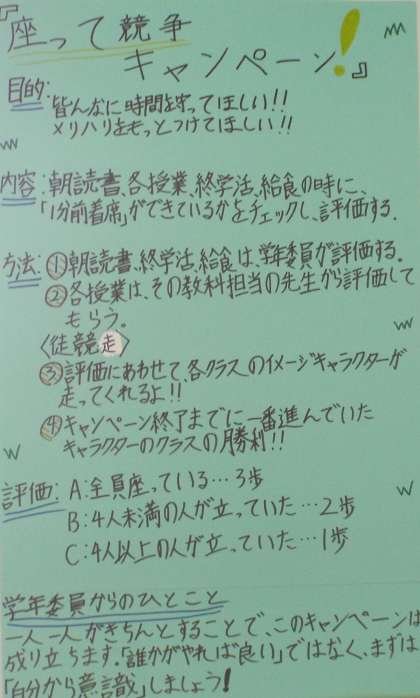 『座って競争
キャンペーン!』
目的:皆んなに時間を守ってほしい!!
メリハリをもっとつけてほしい!!
内容:朝読書、各授業、終学活、給食の時に、
「1分前着席」ができているかをチェックし、評価する。
方法:①朝読書、終学活、給食は、学年委員が評価する。
②各授業は、その教科担当の先生から評価して
もらう。
〈徒競走〉
③評価にあわせて、各クラスのイメージキャラクターが
走ってくれるよ!!
④キャンペーン終了までに一番進んでいた
キャラクターのクラスの勝利!!
評価:A:全員座っている…3歩
B:4人未満の人が立っていた…2歩
C:4人以上の人が立っていた…1歩
学年委員からのひとこと
一人一人がきちんとすることで、このキャンペーンは
成り立ちます。「誰かがやれば良い」ではなく、まずは
「自分から意識」しましょう!